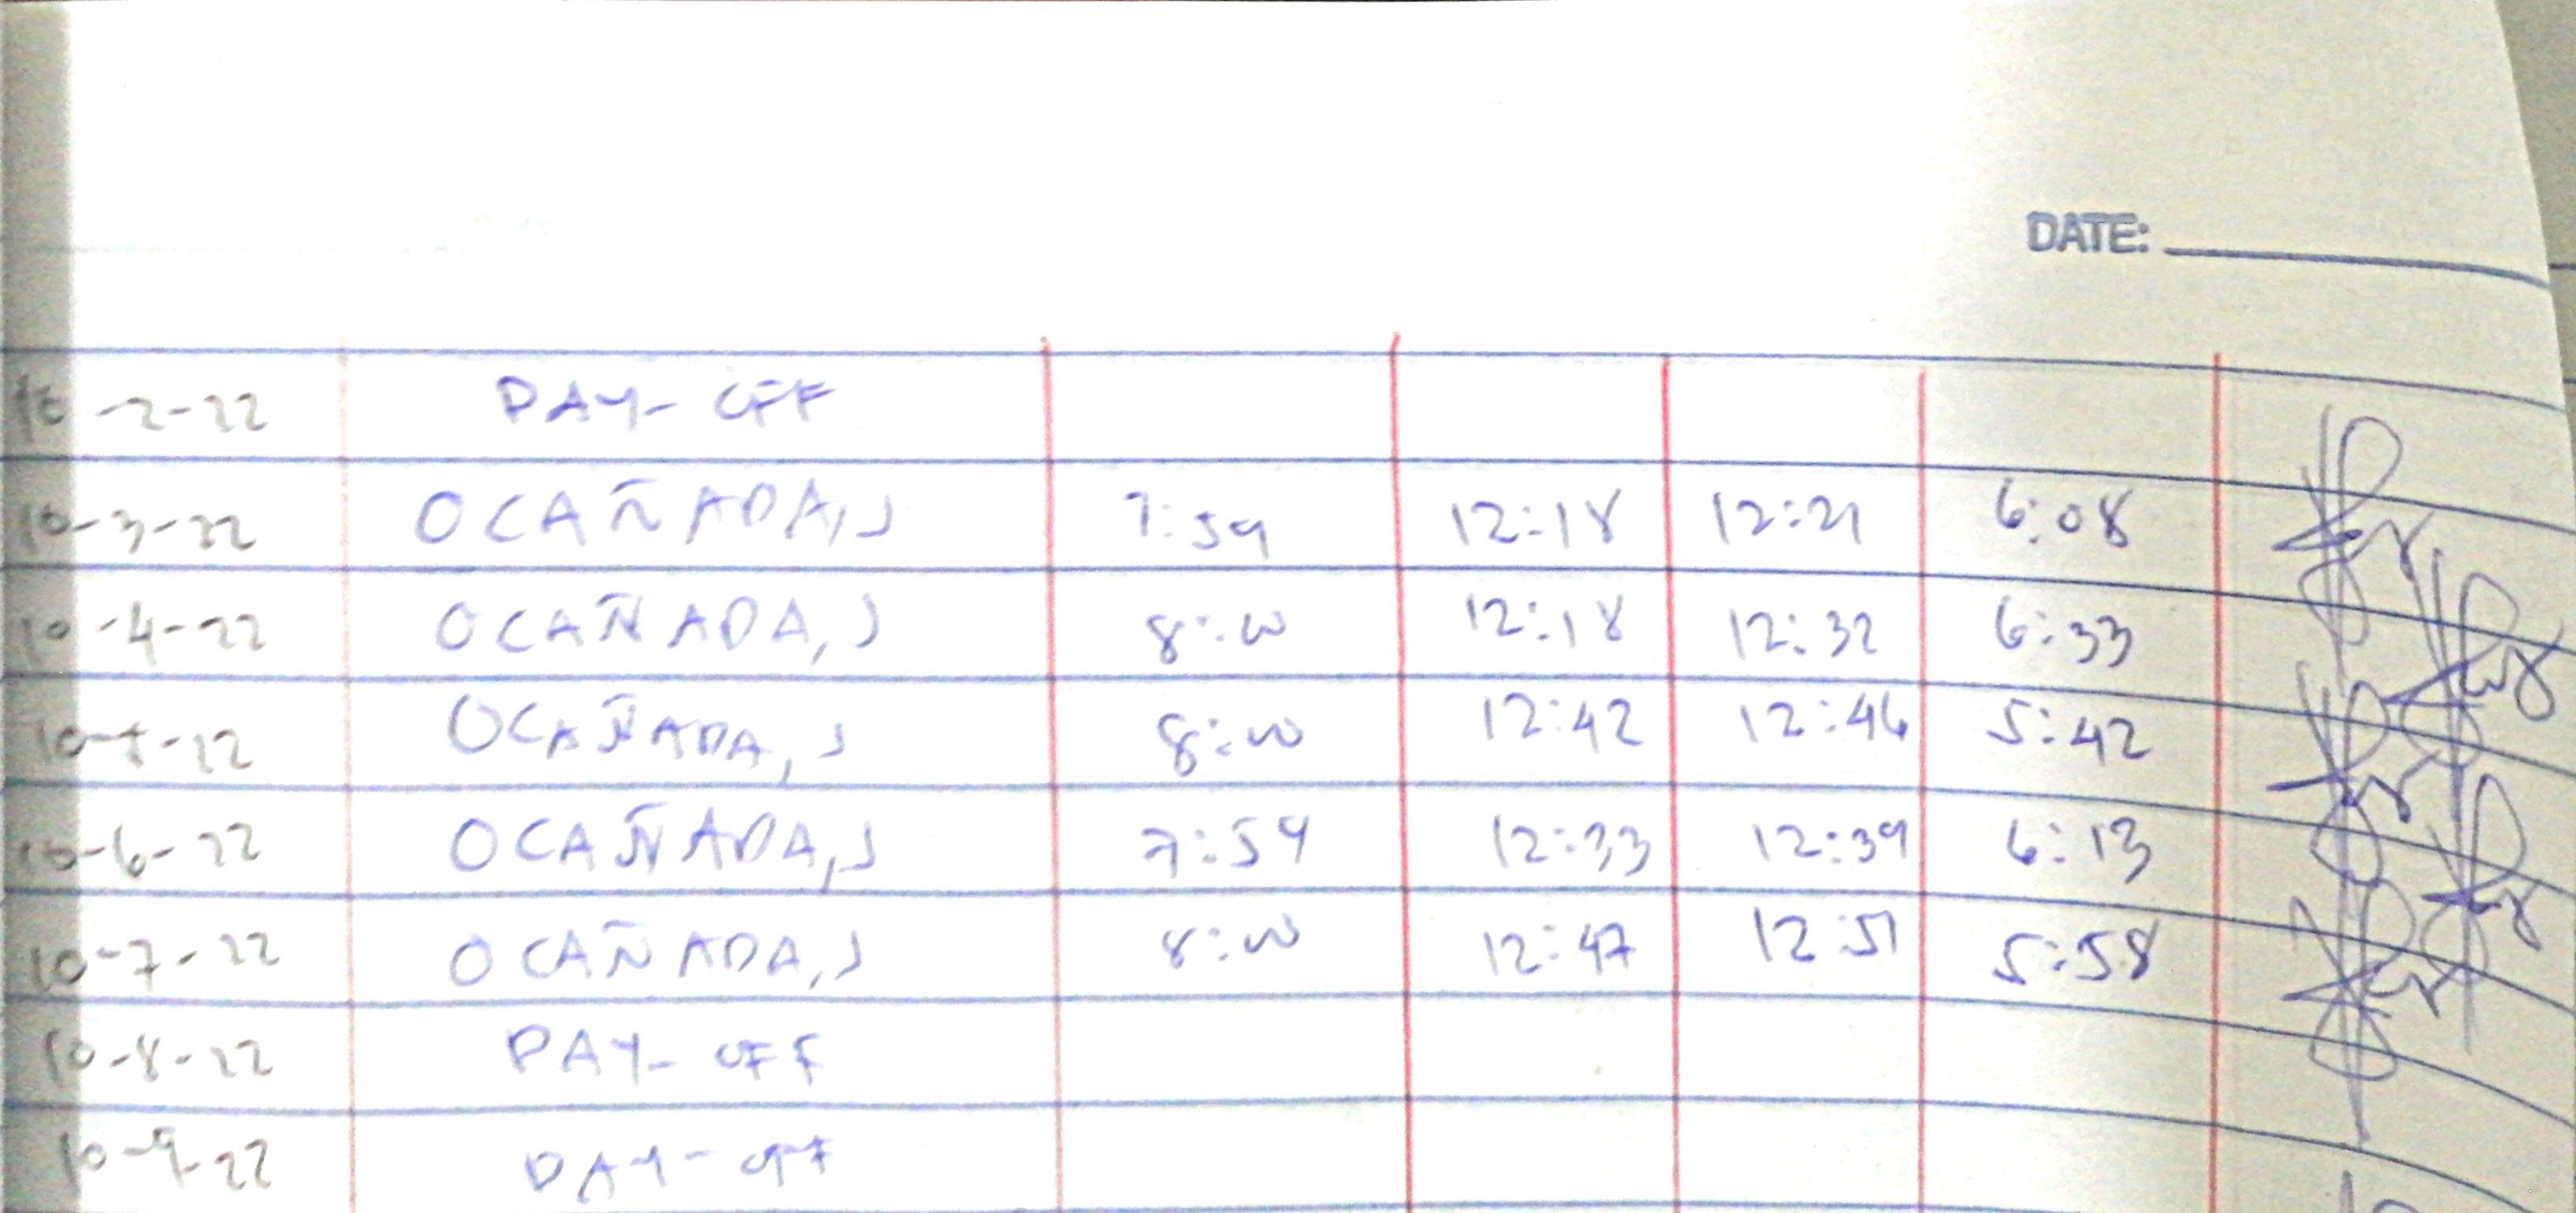 DATE:
10-2-22 DAY-OFF
10-3-22 OCAÑADA, J 7:59 12:18 12:21 6:08
10-4-22 OCAÑADA, J 8:00 12:18 12:32 6:33
10-5-22 OCAÑADA, J 8:00 12:42 12:46 5:42
10-6-22 OCAÑADA, J 7:59 12:33 12:39 6:13
10-7-22 OCAÑADA, J 8:00 12:47 12:51 5:58
10-8-22 DAY-OFF
10-9-22 DAY-OFF